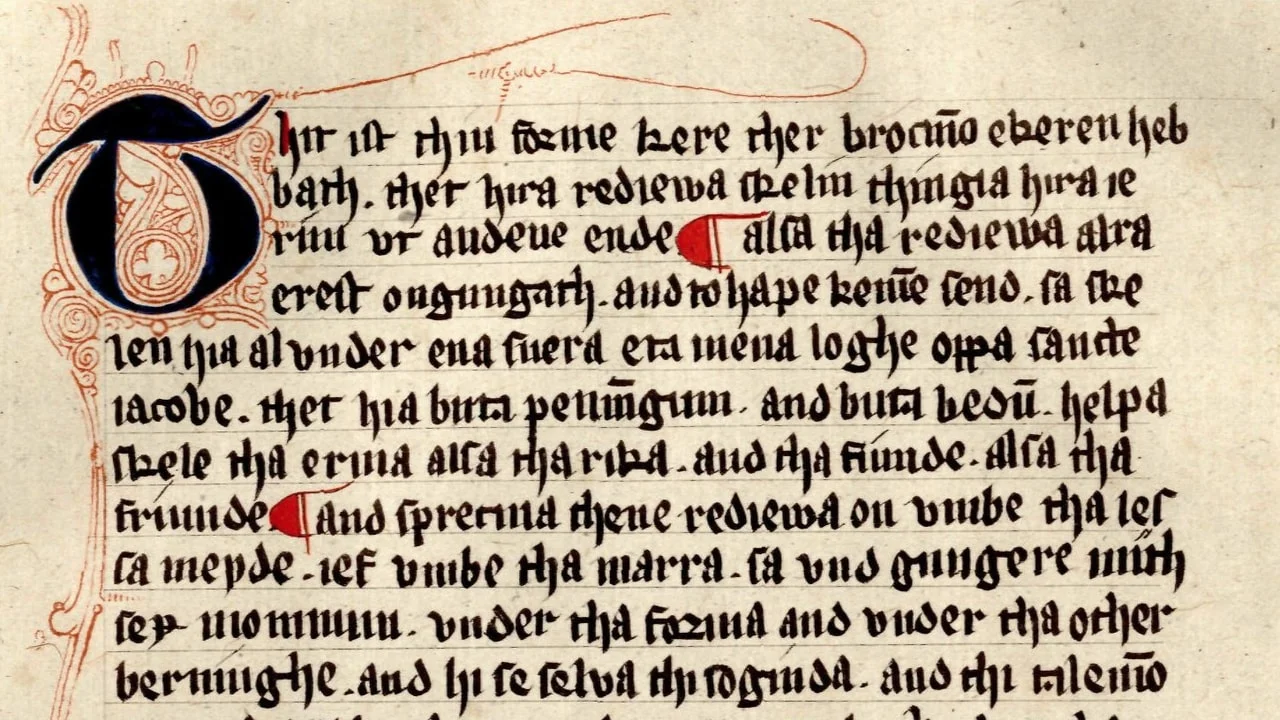 Thit ist thiu forme kere ther brocm̄o ekeren heb
bath. thet hira rediewa skelin thingia hira ie
rim vt andene ende ¶ alsa tha rediewa alra
erest ongungath. and to hape kem̄e send. sa ske
len hia al vnder ena suera eta mena loghe oppa sancte
iacobe. thet hia buta penniṅgum. and buta bedū. helpa
skele tha erma alsa tha rika. and tha fiunde. alsa tha
friunde. ¶ and sprecma thene rediewa on vmbe tha les
sa meyde. ief vmbe tha marra. sa vnd gungere mith
sex monnum. vnder tha forma and vnder tha other
berninghe. and hi se selva thi soginda. and thi talem̄o